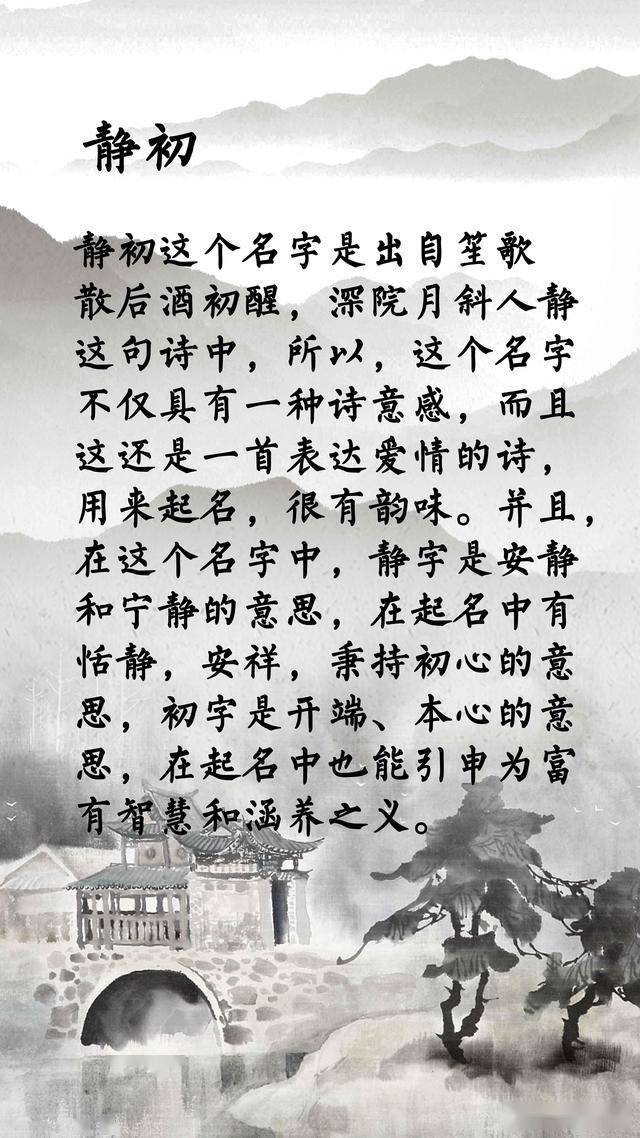 静初
静初这个名字是出自笙歌
散后酒初醒，深院月斜人静
这句诗中，所以，这个名字
不仅具有一种诗意感，而且
这还是一首表达爱情的诗，
用来起名，很有韵味。并且，
在这个名字中，静字是安静
和宁静的意思，在起名中有
恬静，安祥，秉持初心的意
思，初字是开端、本心的意
思，在起名中也能引申为富
有智慧和涵养之义。